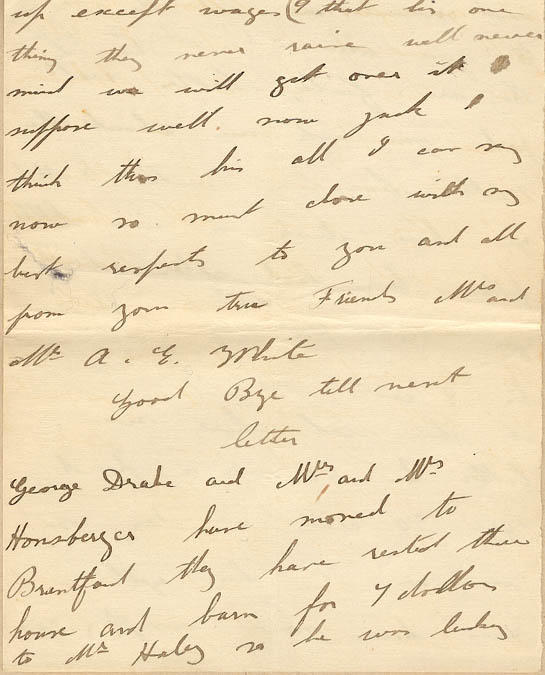 up except wages (& that his one
thing they never raise well never
mind we will get over it I
suppose well now Jack I
think this his all I can say
now so must close with my
best respects to you and all
from your true Friends Mrs and
Mr A. E. White
Good Bye till next
letter
George Drake and Mrs and Mrs
Honsberger have moved to
Brentford they have rested there
house and barn for 7 dollars
to Mr Haley so he was lucky